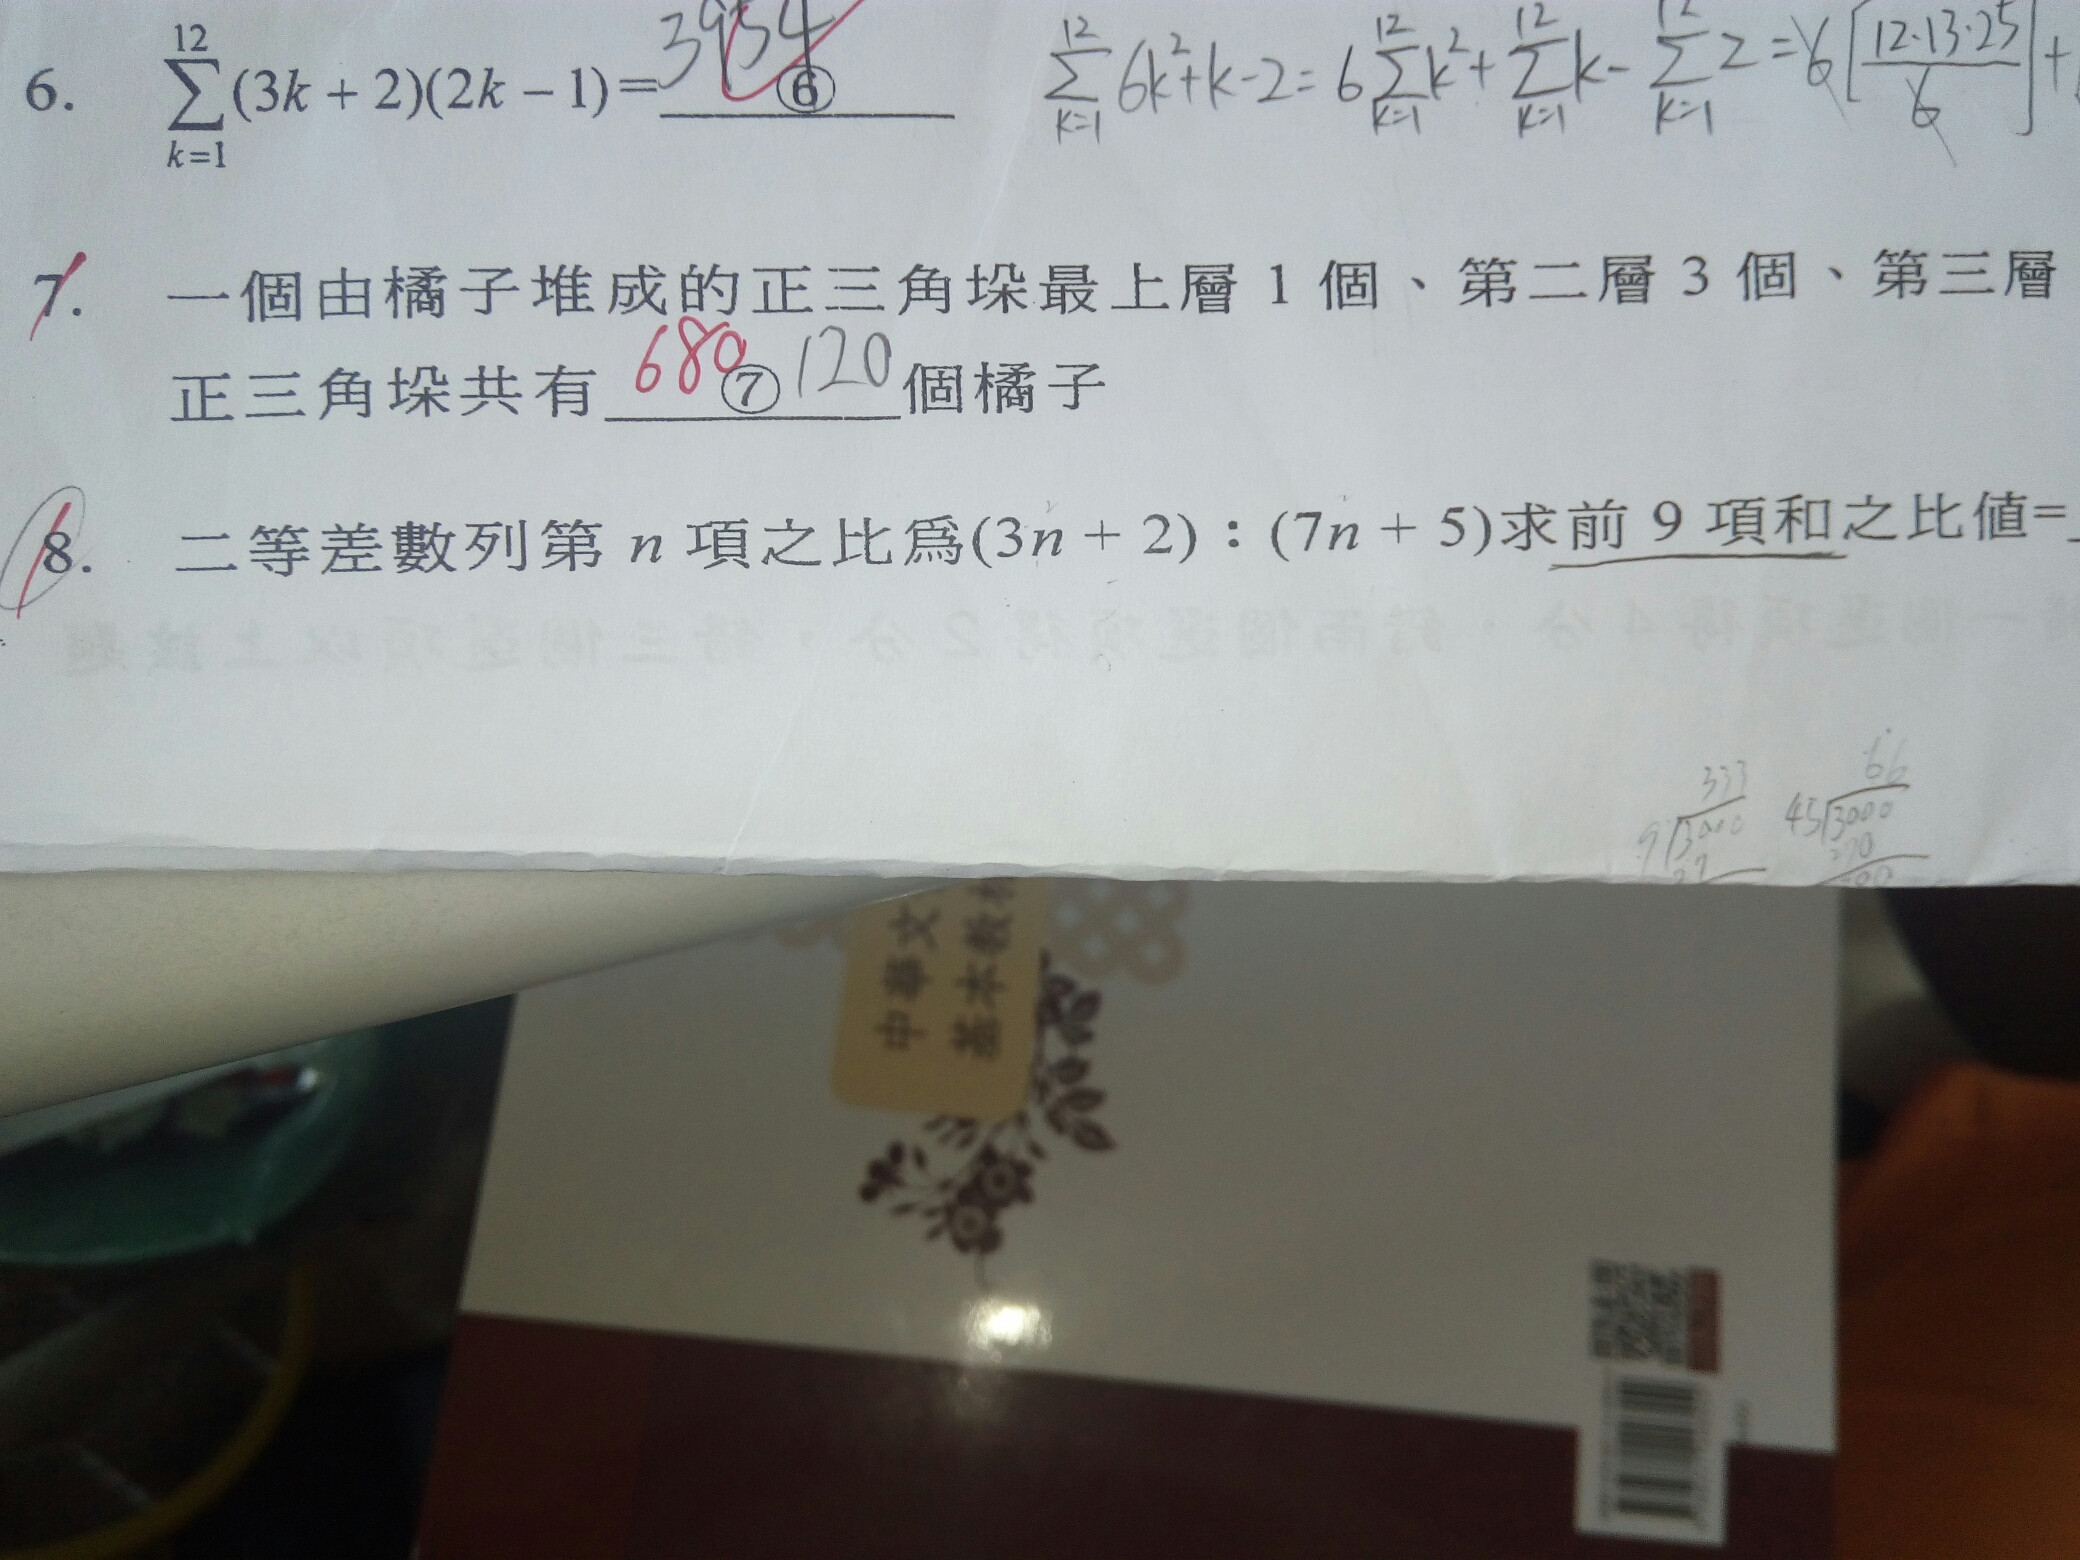 6. $\sum_{k=1}^{12}(3k+2)(2k-1)=$ 3954 ⑥ $\sum_{k=1}^{12} 6k^2+k-2 = 6\sum_{k=1}^{12}k^2+\sum_{k=1}^{12}k-\sum_{k=1}^{12}2=6\left[\frac{12\cdot13\cdot25}{6}\right]+$
7. 一個由橘子堆成的正三角垛最上層 1 個、第二層 3 個、第三層
正三角垛共有 680 ⑦ 120 個橘子
8. 二等差數列第 n 項之比爲(3n + 2)：(7n + 5)求前 9 項和之比值=
333 66
9 3000 45 3000
27 270
中華文
基本教